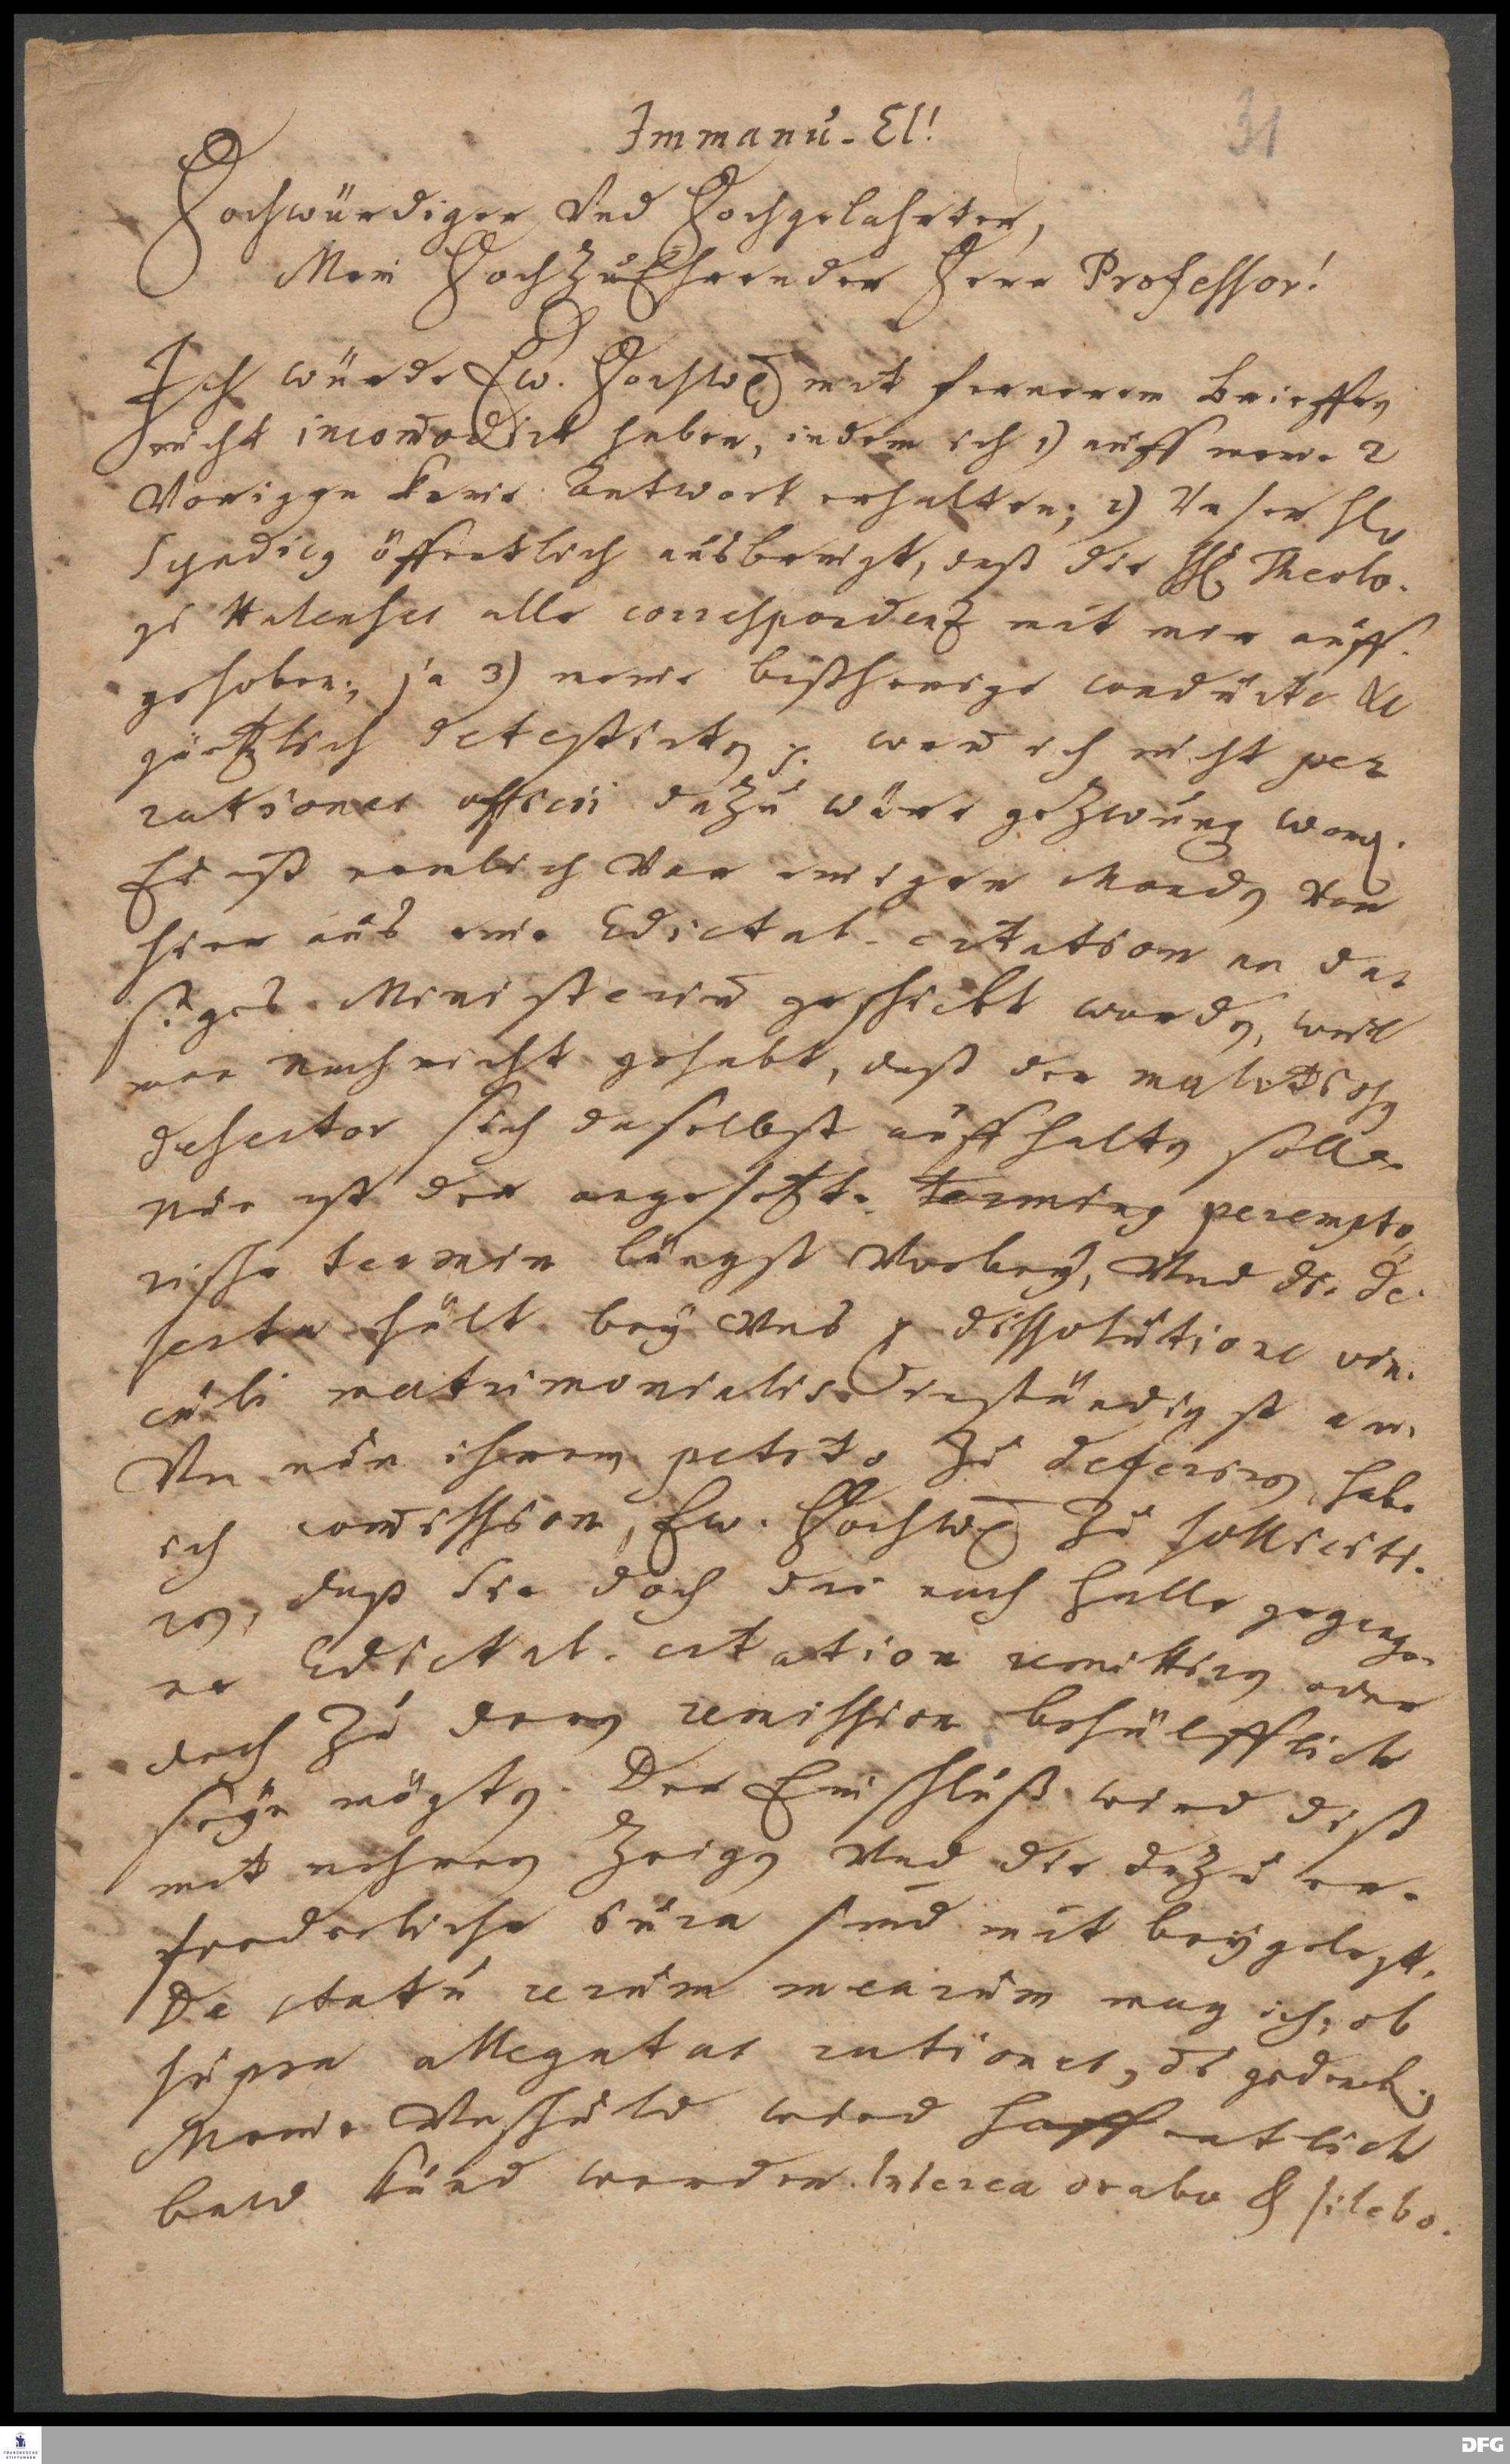 31
Immanu-El!
Hochwürdiger Und Hochgelahrter,
Mein HochzuEhrender Herr Professor!
Ich würde Ew. Hochw. mit fernerem Brieffen
nicht incom̄odirt haben, indem ich 1) auff meine 2
Vorigen keine Antwort erhalten; 2) Unser H.
Syndicus öffentlich ausbringt, daß die HH. Theolo-
gi Halenses alle correspondenz mit mir auff-
gehoben; ja 3) meine bißherige conduite
gäntzlich detestirten p. wen̄ ich nicht per
rationes officii dazu wäre gezwungen word.
Es ist nemlich Vor einigen Monden Von
hier aus eine Edictal-citation an das
Ministeriū geschickt worden, weil
man nachricht gehabt, daß der malitiosus
desertor sich daselbst auffhalten solle.
Nun ist der angesetzte terminus perempto-
rische termin längst Vorbey, Und die de-
serta hält bey Uns p dissolutione vin-
culi matrimonialis inständigst an.
Um nun ihrem petito zu deferiren, habe
ich com̄ission, Ew. Hochw. zu solliciti-
ren, daß Sie doch die nach Halle gegange-
ne Edictal-citation remittiren oder
doch zu deren remission behülfflich
seyn mögten. Der Einschluß wird diß
mit mehren zeigen Und die dazu er-
foderliche iura sind mit beygelegt.
De statu rerum mearum mag ich, ob
supra allegatas rationes, nicht gedencken,
Meine Unschuld wird hoffentlich
bald kund werden. Interea orabo & silebo.
FRANCKESCHE
STIFTUNGEN
DFG